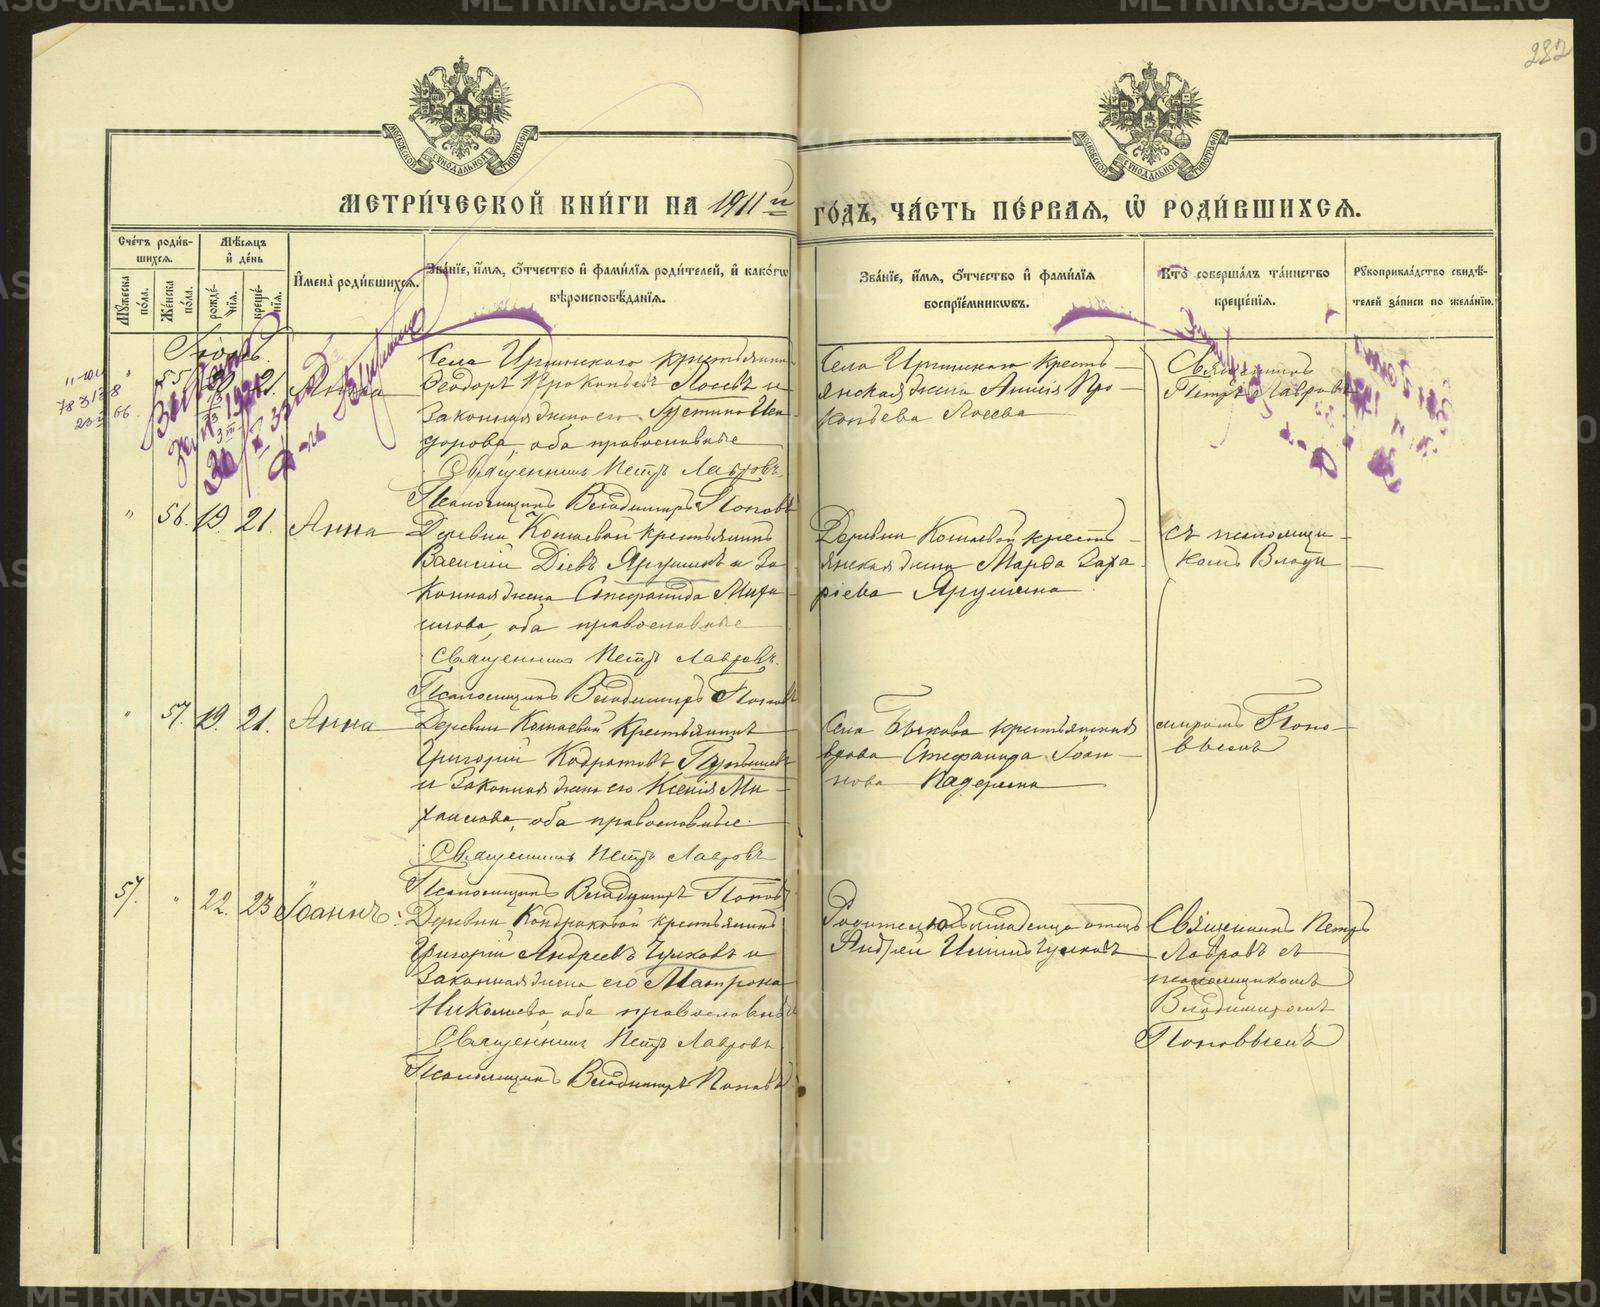 282
МОСКОВСКОЙ СѴНОДАЛЬНОЙ ТИПОГРАФІИ
МОСКОВСКОЙ СѴНОДАЛЬНОЙ ТИПОГРАФІИ
МЕТРИ́ЧЕСКОЙ КНИ́ГИ НА 1911 й
ГО́ДЪ, ЧА́СТЬ ПЕ́РВАѦ, Ѡ҆ РОДИ́ВШИХСѦ.
Сче́тъ роди́в-
шихсѧ.
Мꙋ́жеска по́ла.
Же́нска по́ла.
Мѣ́сѧцъ
и҆ де́нь
рожде́-
нїѧ.
креще́-
нїѧ.
И҆мена̀ роди́вшихсѧ.
Зва́нїе, и҆́мѧ, ѻ҆́тчество и҆ фами́лїѧ роди́телей, и҆ како́гѡ
вѣроисповѣ́данїѧ.
Зва́нїе, и҆́мѧ, ѻ҆́тчество и҆ фами́лїѧ
воспрїе́мникѡвъ.
Кто̀ соверша́лъ та́инство
креще́нїѧ.
Рꙋкоприкла́дство свидѣ́-
телей за́писи по жела́нїю.
Села Иргинскаго крестьянинъ
Ѳеодоръ Прокопьевъ Лосевъ и
законная жена его Іустина Иси
дорова, оба православные
Священникъ Петръ Лавровъ
Псаломщикъ Владимиръ Поповъ
Села Иргинскаго кресть-
янская жена Анисія Про-
копьева Лосева
Священникъ
Петръ Лавровъ
" 56. 19. 21. Анна
Деревни Кошаевой крестьянинъ
Василій Діевъ Ярушинъ и за
конная жена Стефанида Миха
илова, оба православные
Священникъ Петръ Лавровъ
Псаломщикъ Владимиръ Поповъ
Деревни Кошаевой кресть-
янская жена Марѳа Заха-
ріева Ярушина
съ псаломщи-
комъ Влади
" 57. 19. 21. Анна
Деревни Кошаевой крестьянинъ
Григорій
и законная жена его Ксенія Ми-
хаилова, оба православные
Священникъ Петръ Лавровъ
Псаломщикъ Владимиръ Поповъ
Села Быкова крестьянская
вдова Стефанида Іоан-
нова Падерина
миромъ Попо-
вымъ
57. " 22. 23 Іоаннъ
Деревни Кондраковой крестьянинъ
Григорій Андреевъ Чулковъ и
законная жена его Матрона
Николаева, оба православные
Священникъ Петръ Лавровъ
Псаломщикъ Владимиръ Поповъ
Родителя младенца отецъ
Андрей Чулковъ
Священникъ Петръ
Лавровъ съ
псаломщикомъ
Владимиромъ
Поповымъ